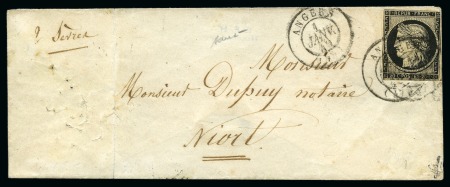 2 Sèvres
ANGERS
1
JANV.
REPUB. FRANC.
Monsieur
Monsieur Dupuy notaire
Niort